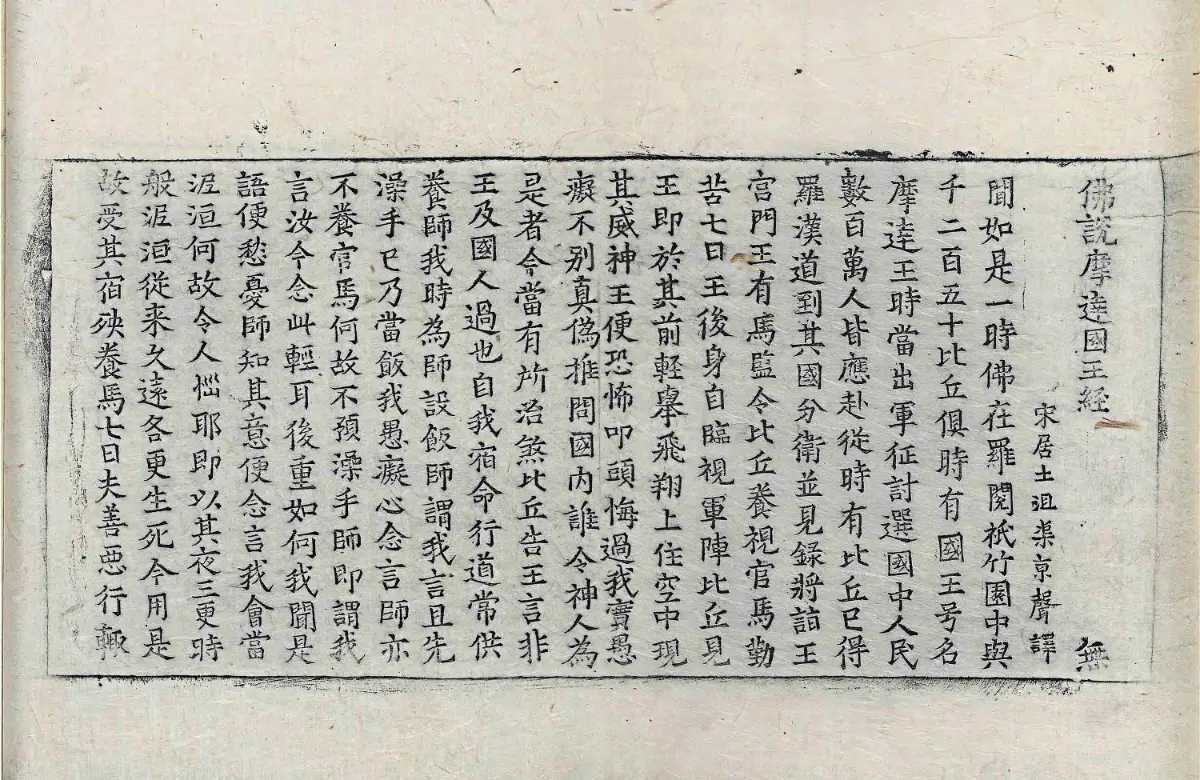 佛說摩達國王經 無
宋居士沮渠京聲譯
聞如是一時佛在羅閱祇竹園中與
千二百五十比丘俱時有國王号名
摩達王時當出軍征討選國中人民
數百萬人皆應赴從時有比丘已得
羅漢道到其國分衛並見錄將詣王
宮門王有馬監令比丘養視官馬勤
苦七日王後身自臨視軍陣比丘見
王即於其前輕舉飛翔上住空中現
其威神王便恐怖叩頭悔過我實愚
癡不別真偽推問國內誰令神人為
是者令當有所治煞比丘告王言非
王及國人過也自我宿命行道常供
養師我時為師設飯師謂我言且先
澡手已乃當飯我愚癡心念言師亦
不養官馬何故不預澡手師即謂我
言汝今念此輕耳後重如何我聞是
語便愁憂師知其意便念言我會當
泥洹何故令人惱耶即以其夜三更時
般泥洹從来久遠各更生死今用是
故受其宿殃養馬七日夫善惡行輙